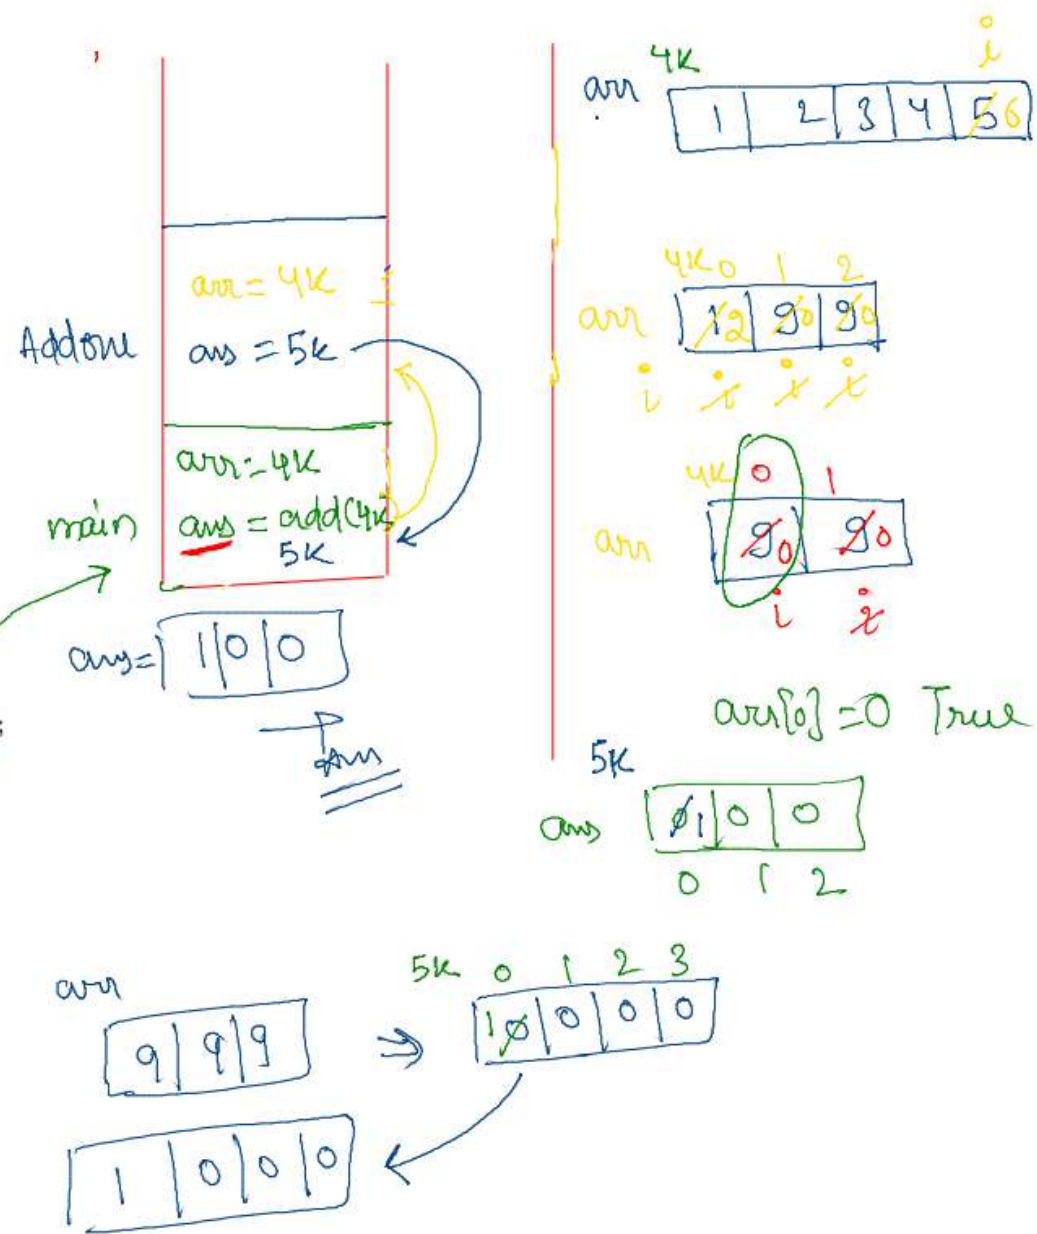 arr = 4K
Addone
ans = 5K
arr = 4K
main
ans = add(4K)
5K
ans = 1 0 0
Ans
i
4K
arr
1 2 3 4 5 6
4K 0 1 2
arr
1 2 9 0 9 0
i i i i
4K 0 1
arr
9 0 9 0
i i
arr[0] = 0 True
5K
ans
0 1 0 0
0 1 2
arr
9 9 9
5K 0 1 2 3
1 0 0 0 0
1 0 0 0